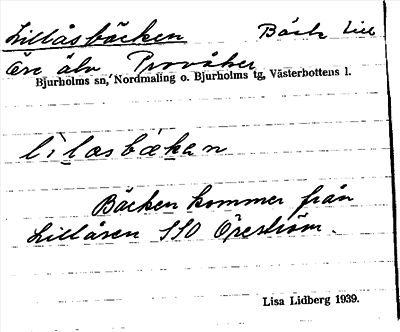 Lillåsbäcken Bäck
Öre älv Provåker
Bjurholms sn, Nordmaling o. Bjurholms tg, Västerbottens l.
lilasbækan
Bäcken kommer från
Lillåsen SSO Öreström.
Lisa Lidberg 1939.